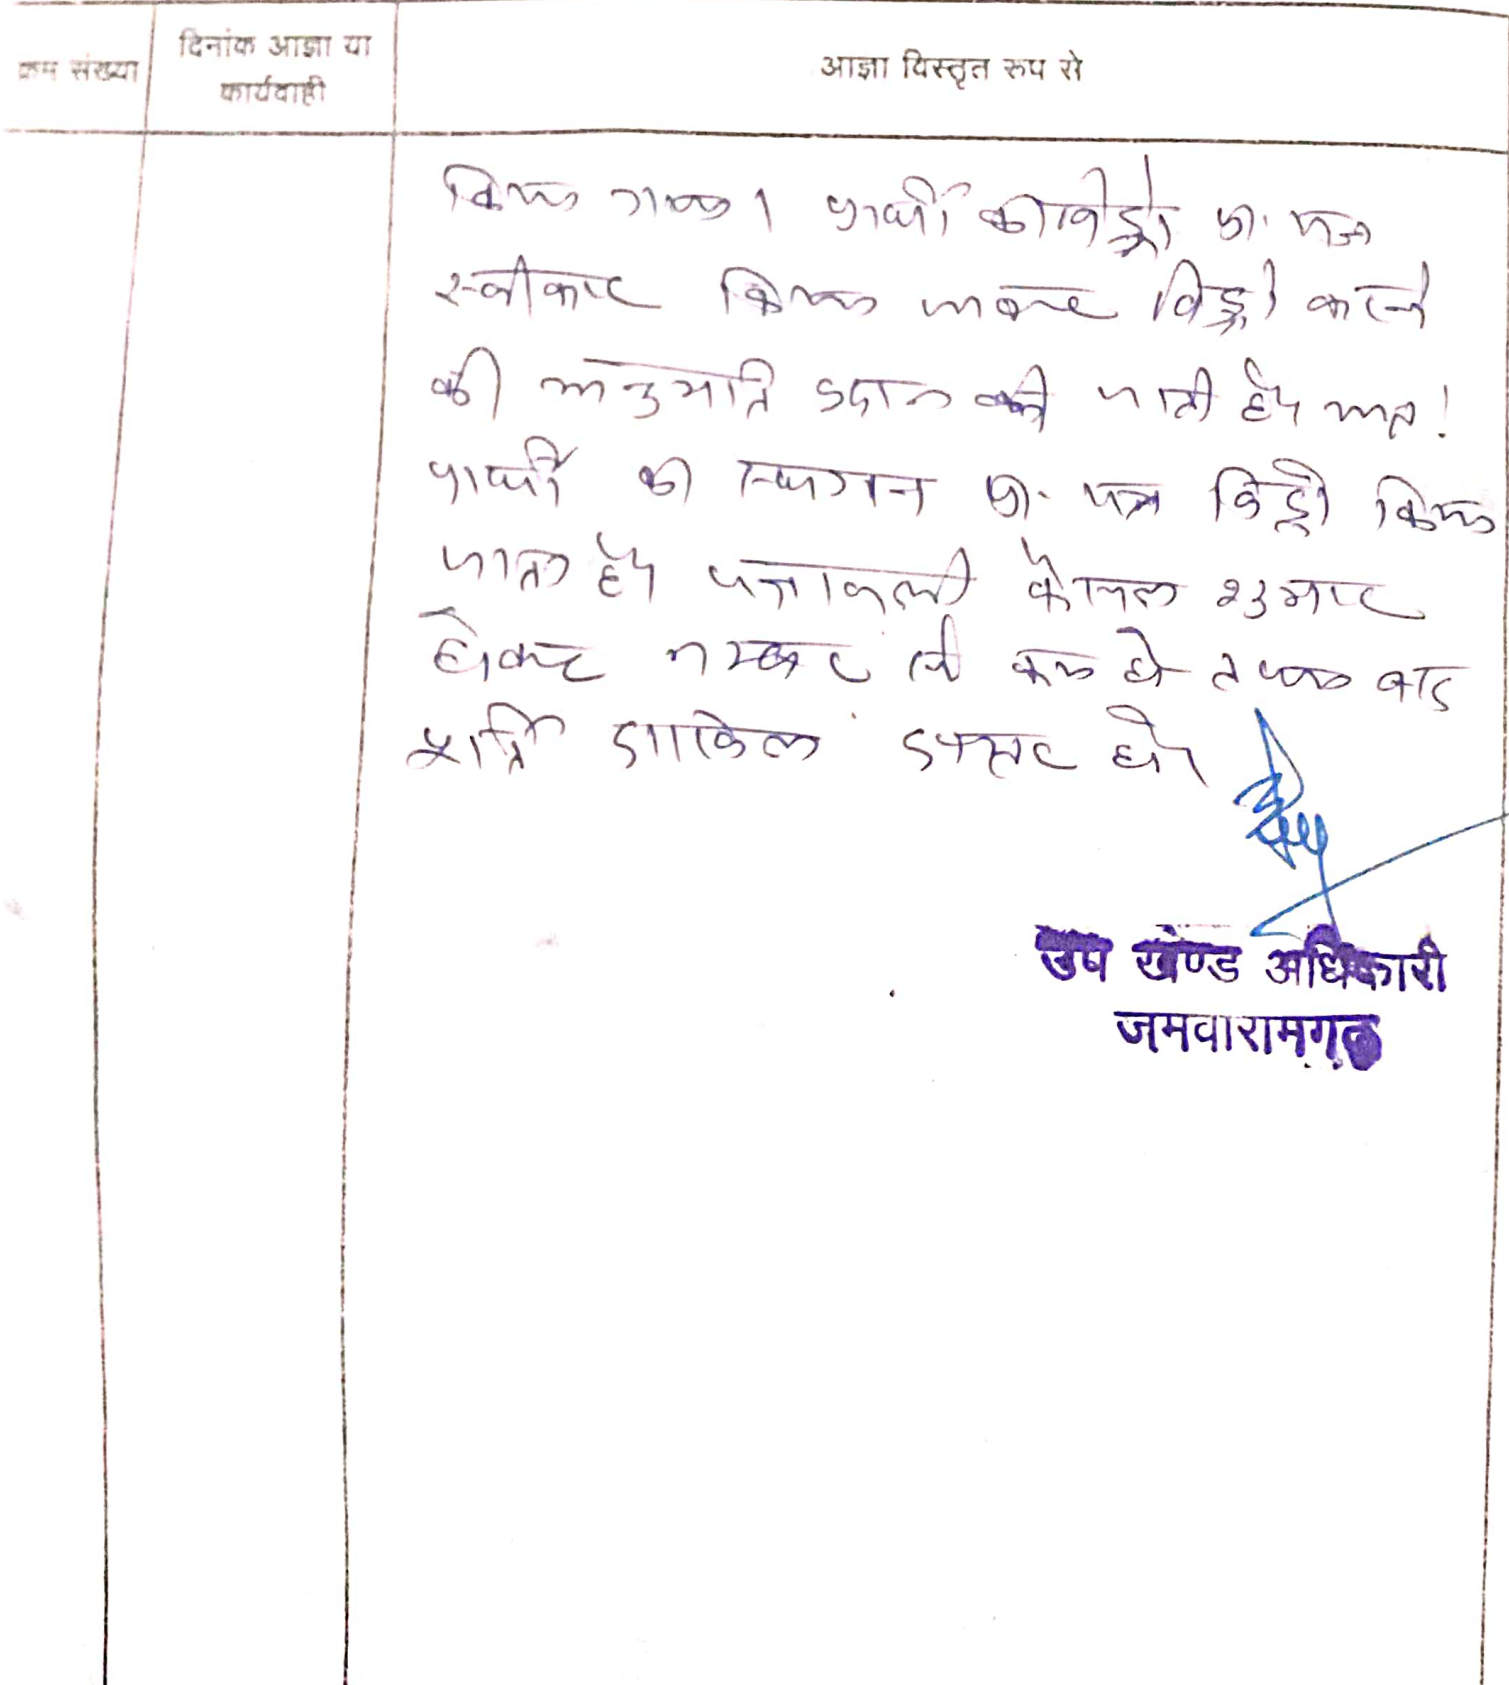 क्रम संख्या
दिनांक आज्ञा या
कार्यवाही
आज्ञा विस्तृत रूप से
किया गया। प्रार्थी का विड्रो प्रा. पत्र
स्वीकार किया जाकर विड्रो करने
की अनुमति प्रदान की जाती है। अतः
प्रार्थी का स्थगन प्रा. पत्र विड्रो किया
जाता है। पत्रावली फैसल शुमार
होकर नम्बर से कम हो तथा बाद
पूर्ति दाखिल दफ्तर हो।
उप खण्ड अधिकारी
जमवारामगढ